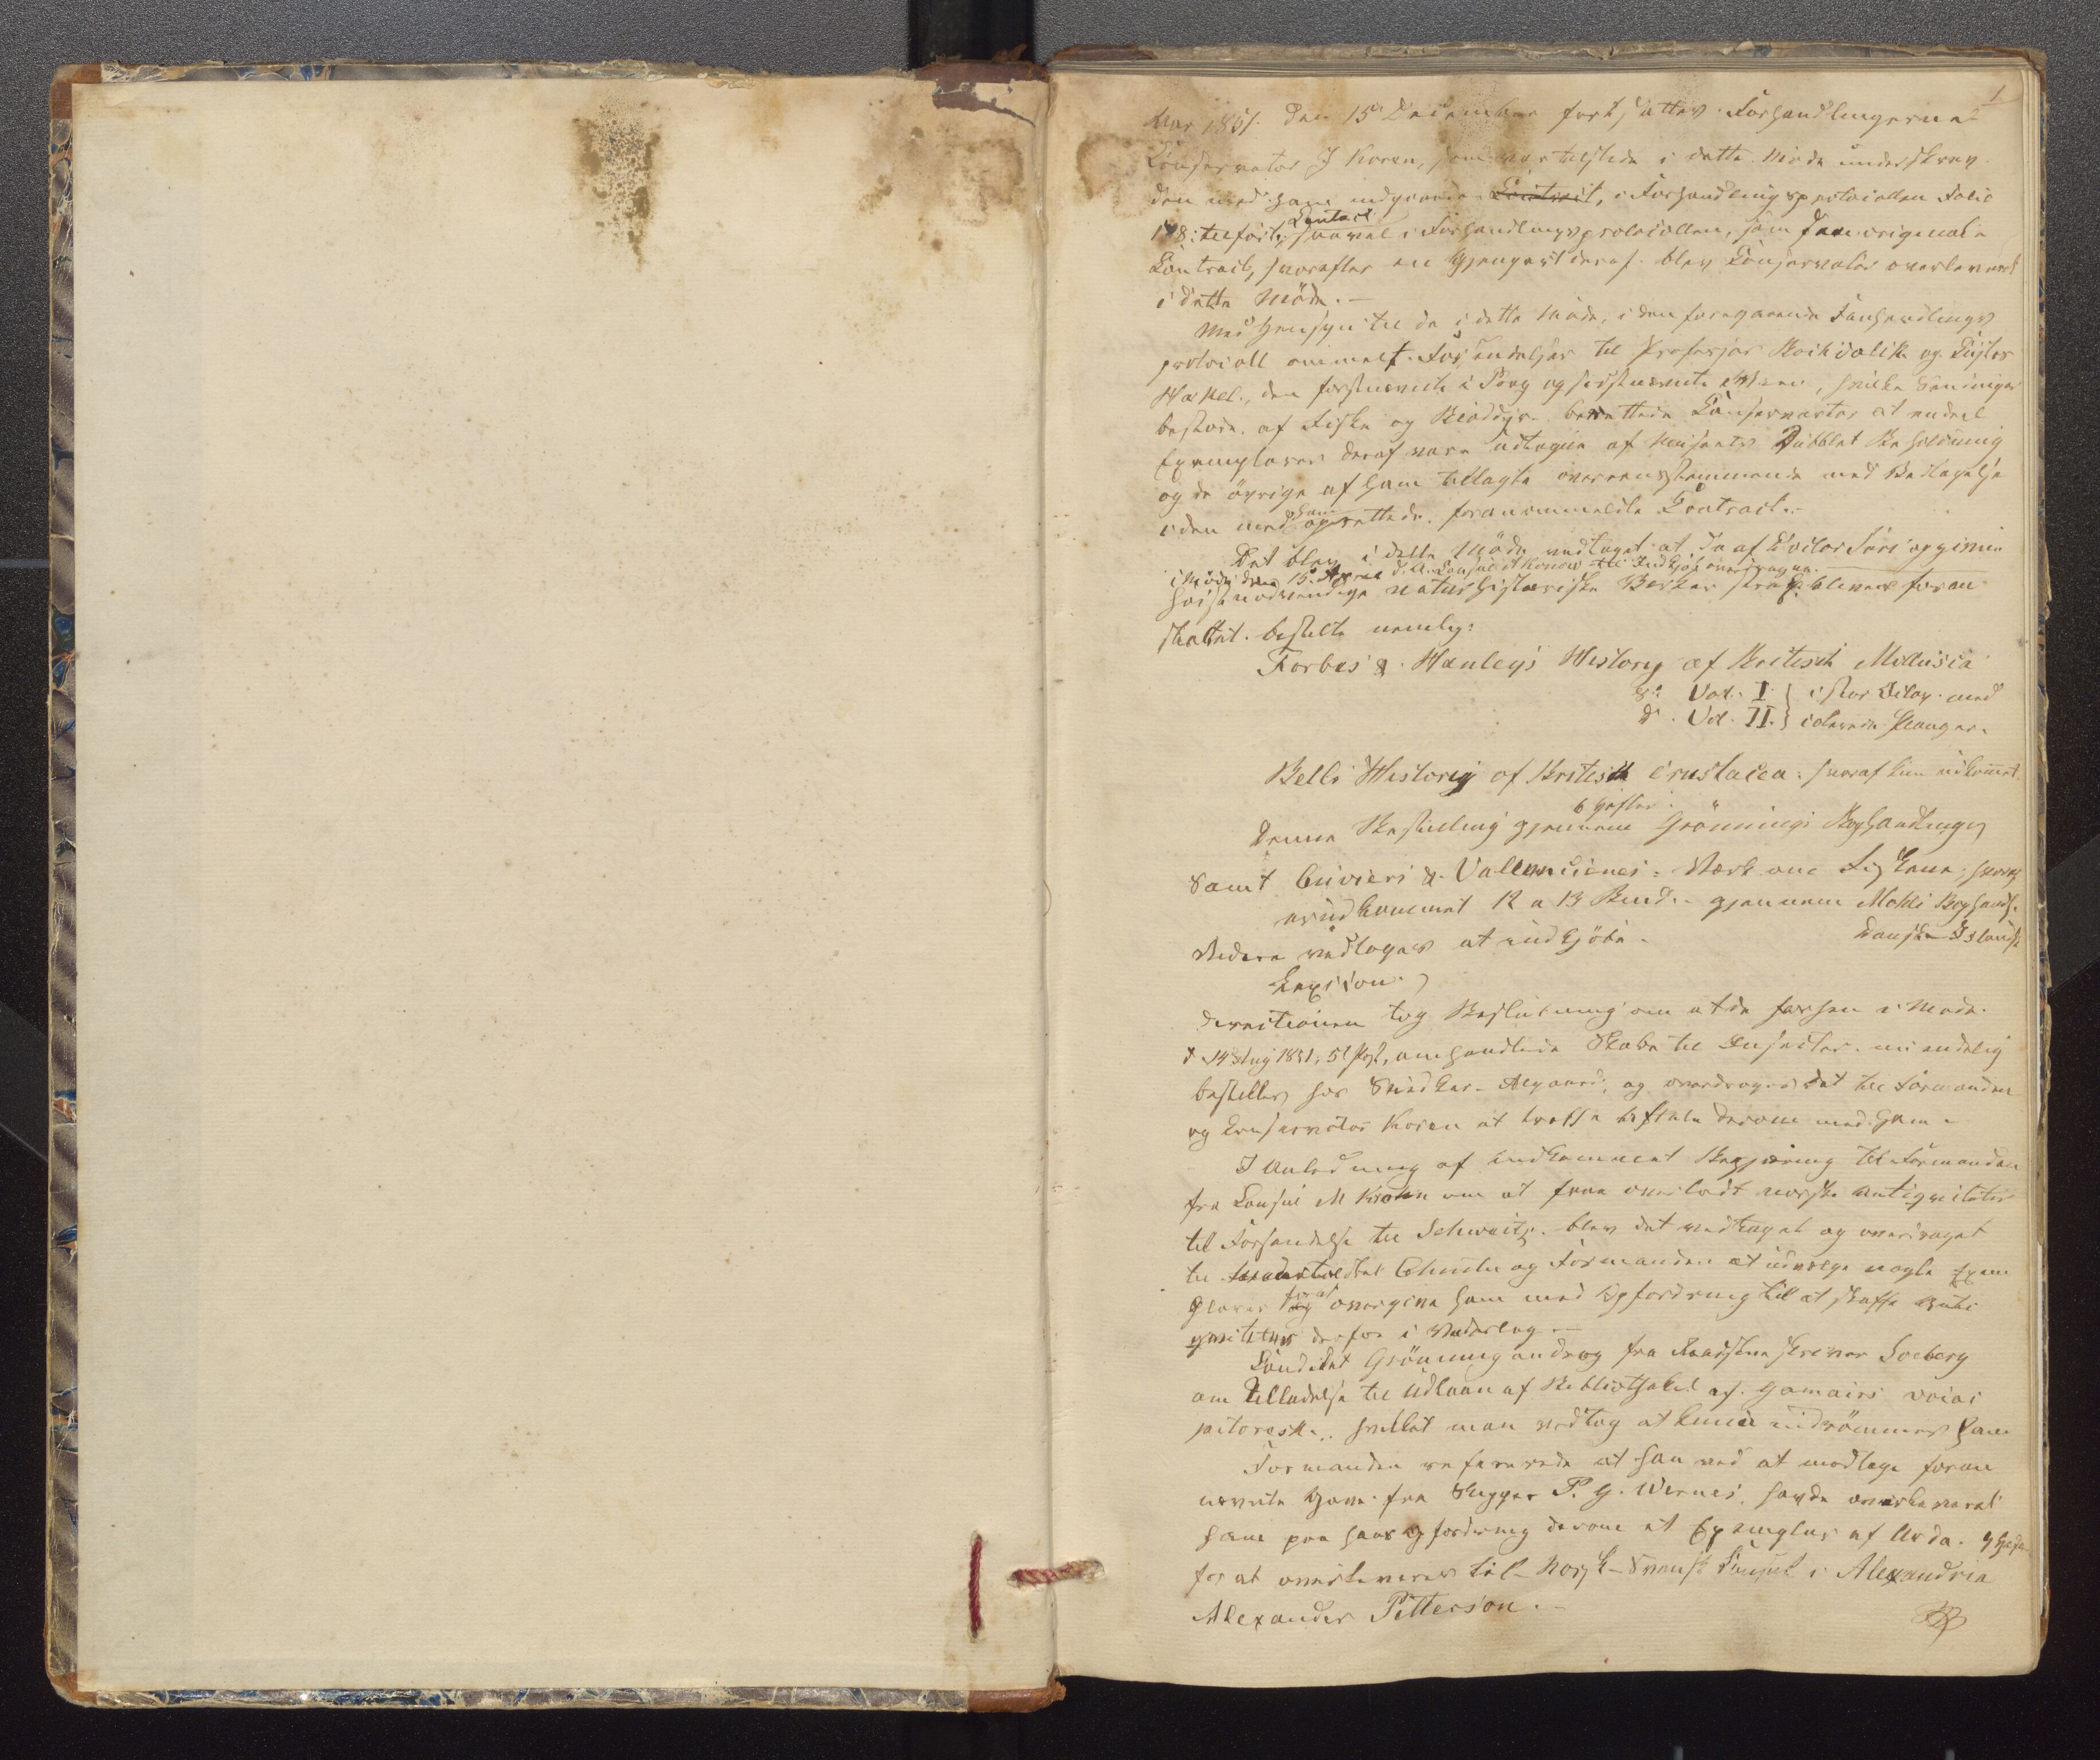 1
Aar 1851. den 15 December fortsattes Forhandlingerne
Conservator J Koren, som var tilstede i dette Möde underskrev
den med ham indgaaede Contract, i Forhandlingsprotocollen Folio
178 tilförte Contract saavel i Forhandlingsprotocollen, som den originale
Contract, hvorefter en Gjenpart deraf blev Conservator overleveret
i dette Möde.-
Med Hensyn til de i dette Möde, i den foregaaende Forhandlings
protocoll ommeldte Forsendelser til Professor Kochidalik og Custos
Hækel, den förstnævnte i Prag og sidstnævnte i Wien, hvilke Sendinger
bestode af Fiske og Blöddyr berettede Conservator at endeel
Exemplarer deraf vare udtagne af Museets Dubblet Beholdning
og de övrige af ham tillagte overeensstemmende med Vedtagelse
i den med ham oprettede foranommeldte Contract.-
Det blev i dette Möde vedtaget at de af Doctor
i Möde den 15 April d. A. Consul Konow til Indkjöb overdragne
höistnödvendige naturhistoriske Værker strax bleve foran
staltet bestilte nemlig:
Forbes & Hanley's History of British Mollusca
do Vol. I } i stor Octav med
do Vol. II. } colorerede
Bells History of British Crustacea: hvoraf kun udkommet
6 Hefter.
denne Bestilling gjennem Grönnings Boghandling
Samt Cuviers & Vallenciennes Værk om Fiskene, hvoraf
er udkommet 12 a 13 Bind.- gjennem Mohls Boghandl.
Videre vedtoges at indkjöbe Dansk-Islandsk
Lexicon.
Directionen tog Beslutning om at de forhen i Möde
d 14 Aug 1851, 5te Post, omhandlede Skabe til Insecter nu endelig
bestilles hos Snedker Aagaard, og overdroges det til Formanden
og Conservator Koren at træffe Aftale derom med ham.-
I Anledning af indkommet Begjæring til Formanden
fra Consul M Krohn om at faae overladt norske Antiqviteter
til Forsendelse til Schweitz blev det vedtaget og overdraget
til Christie og Formanden at udvælge nogle Exem
plarer for at overgive ham med Opfordring til at skaffe Anti
qviteter derfor i Vederlag.-
Candidat Grönning androg fra Raadstueskriver Soeberg
om Tilladelse til Udlaan af Bibliotheket af Gamairs voiai
pitoresk, hvilket man vedtog at kunde indrömmes ham
Formanden refererede at han ved at modtage foran
nævnte Gave fra Skipper P. G. Wernes havde overleveret
ham paa hans Opfordring derom et Exemplar af Urda
for at overleveres til Norsk-Svensk Consul i Alexandria
Alexander Petterson.-